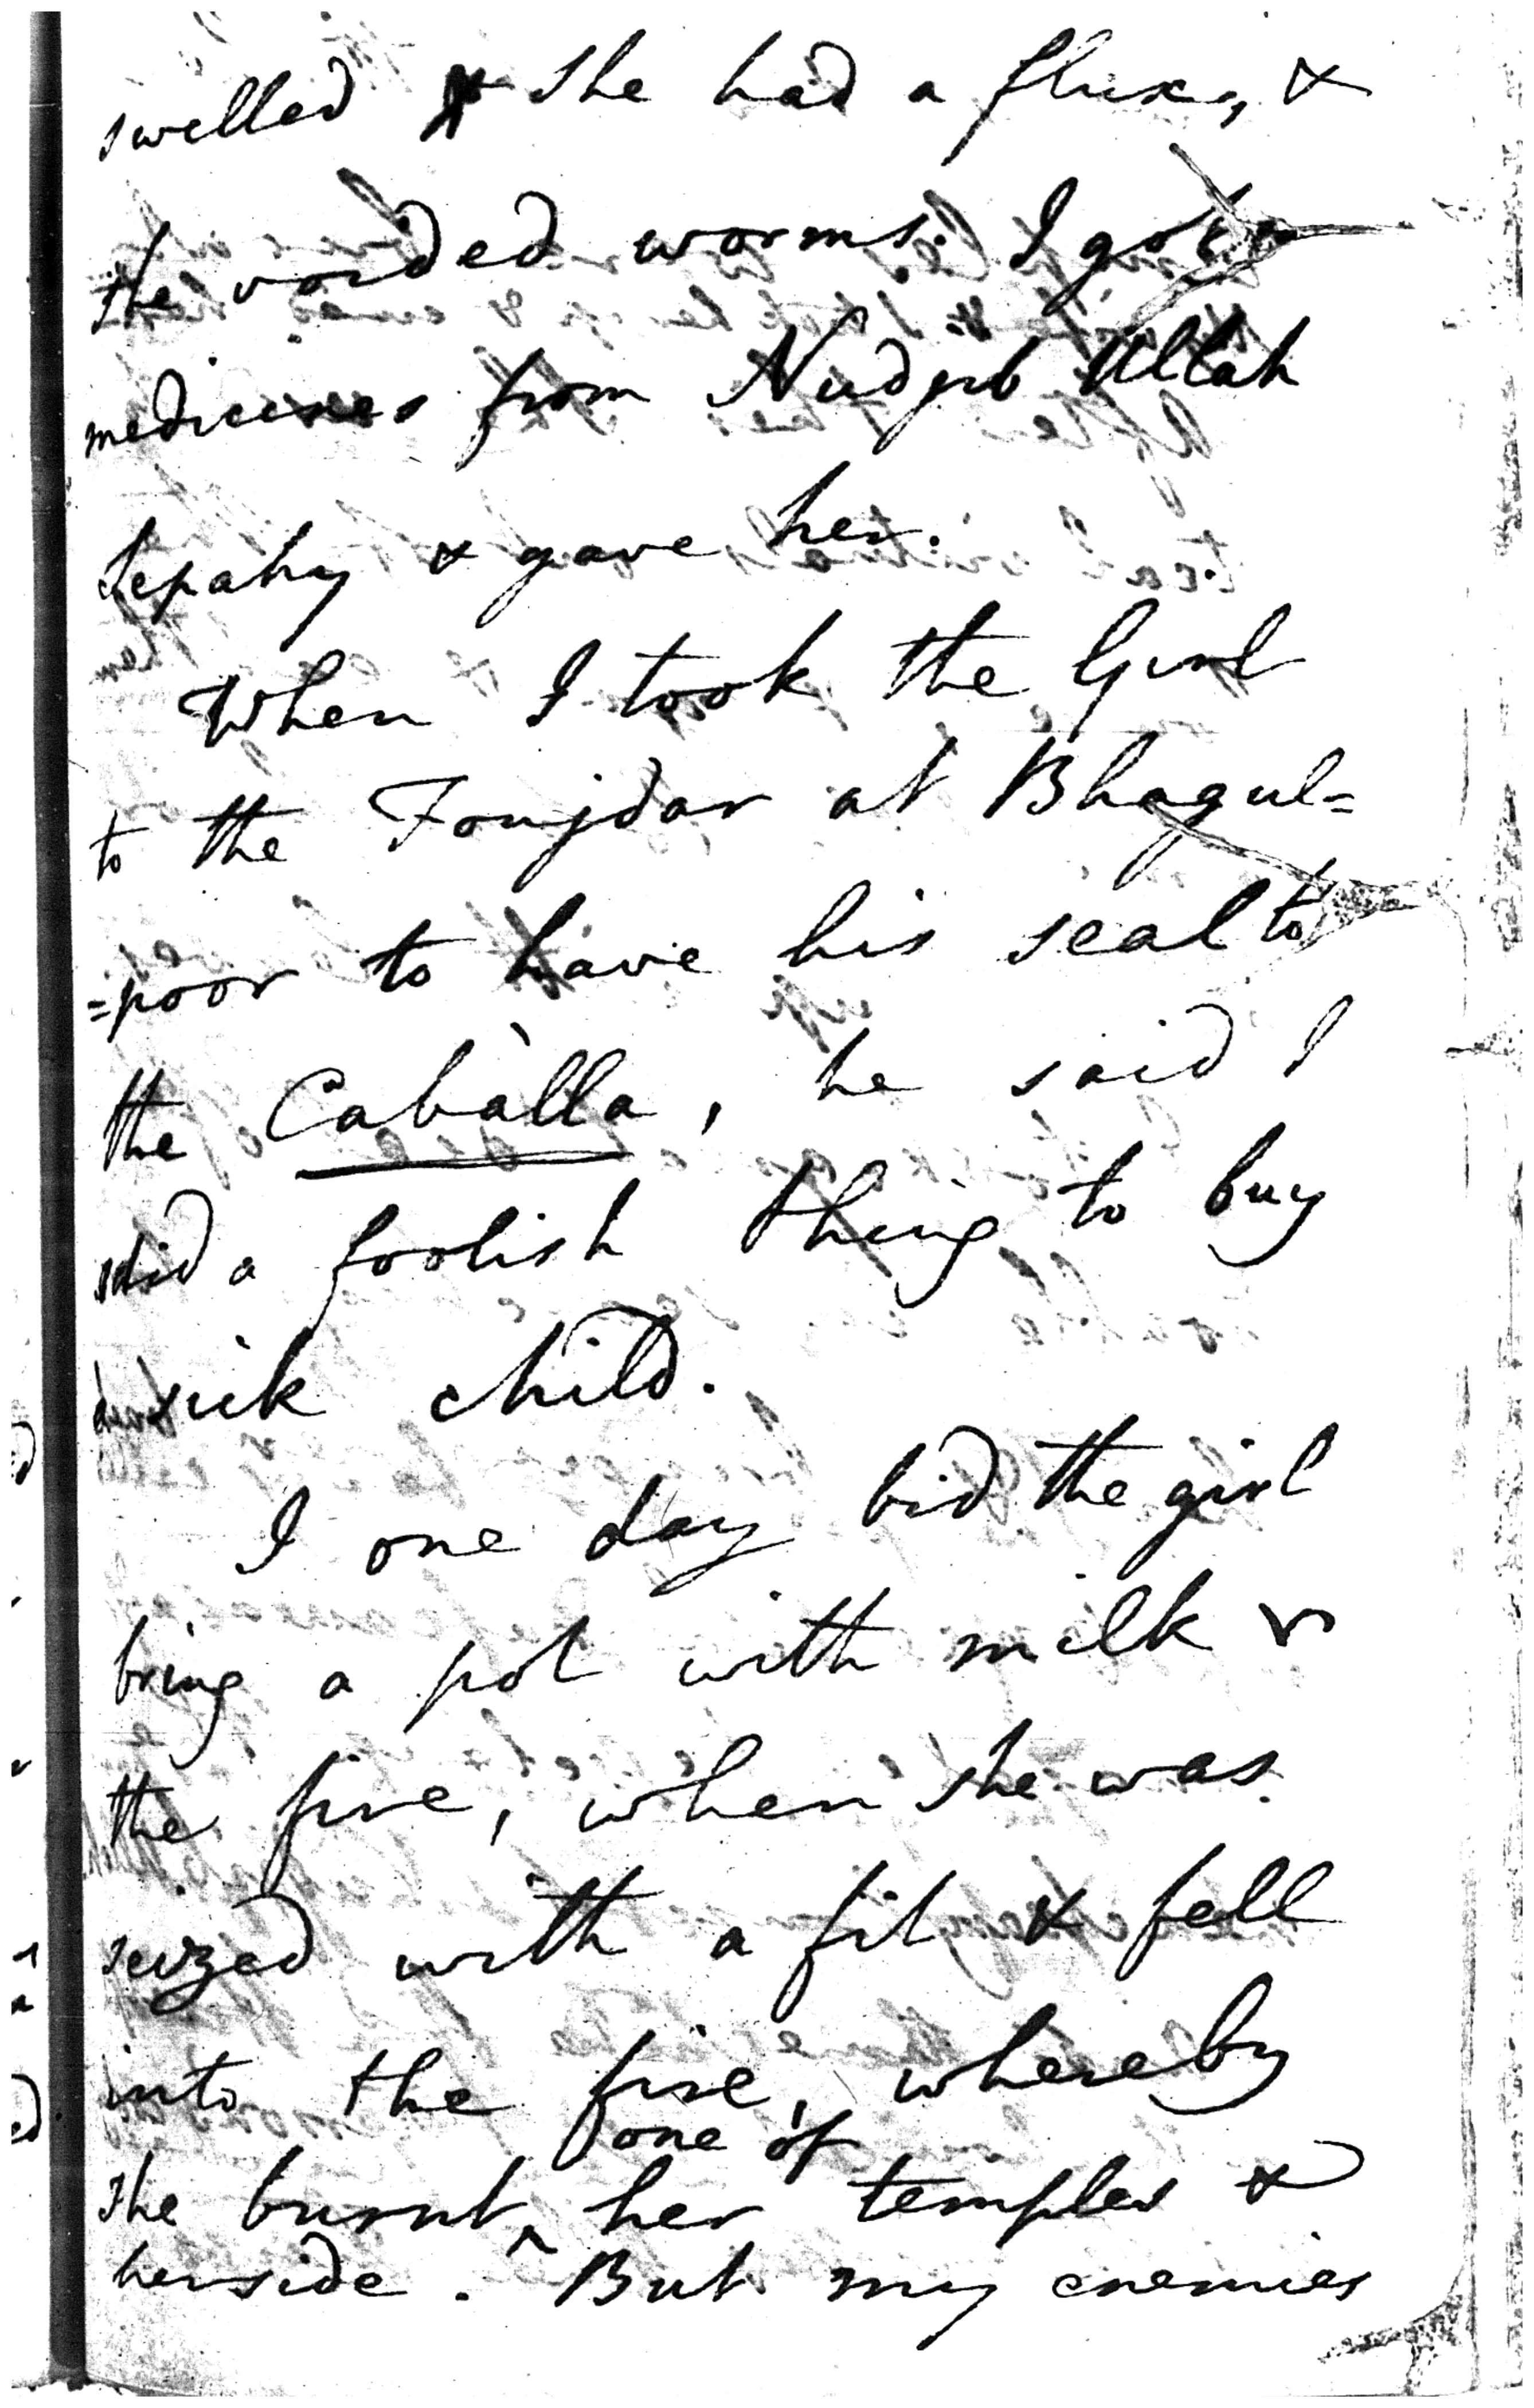 swelled & she had a fluxe, &
she voided worms. I got
medicines from Nudjib Ullah
Sepahy & gave her.
When I took the Girl
to the Foujdar at Bhagul=
=poor to have his seal to
the Cabàlla, he said I
did a foolish thing to buy
a sick child.
I one day bid the girl
bring a pot with milk &
the fire, when she was
seized with a fit & fell
into the fire, whereby
one of
she burnt ^ her temples &
her side. But my enemies